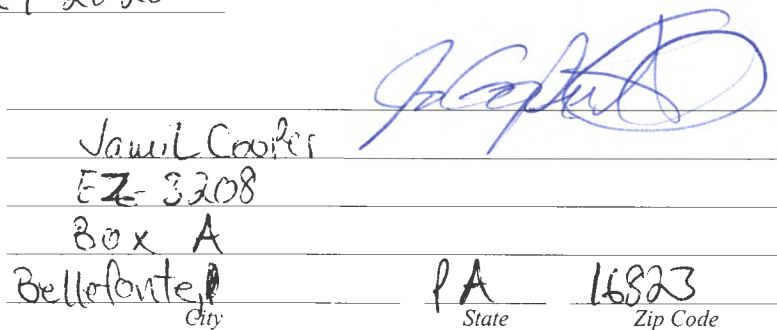 2020
Jamil Cooper
EZ-3208
Box A
Bellefonte, PA 16823
City State Zip Code